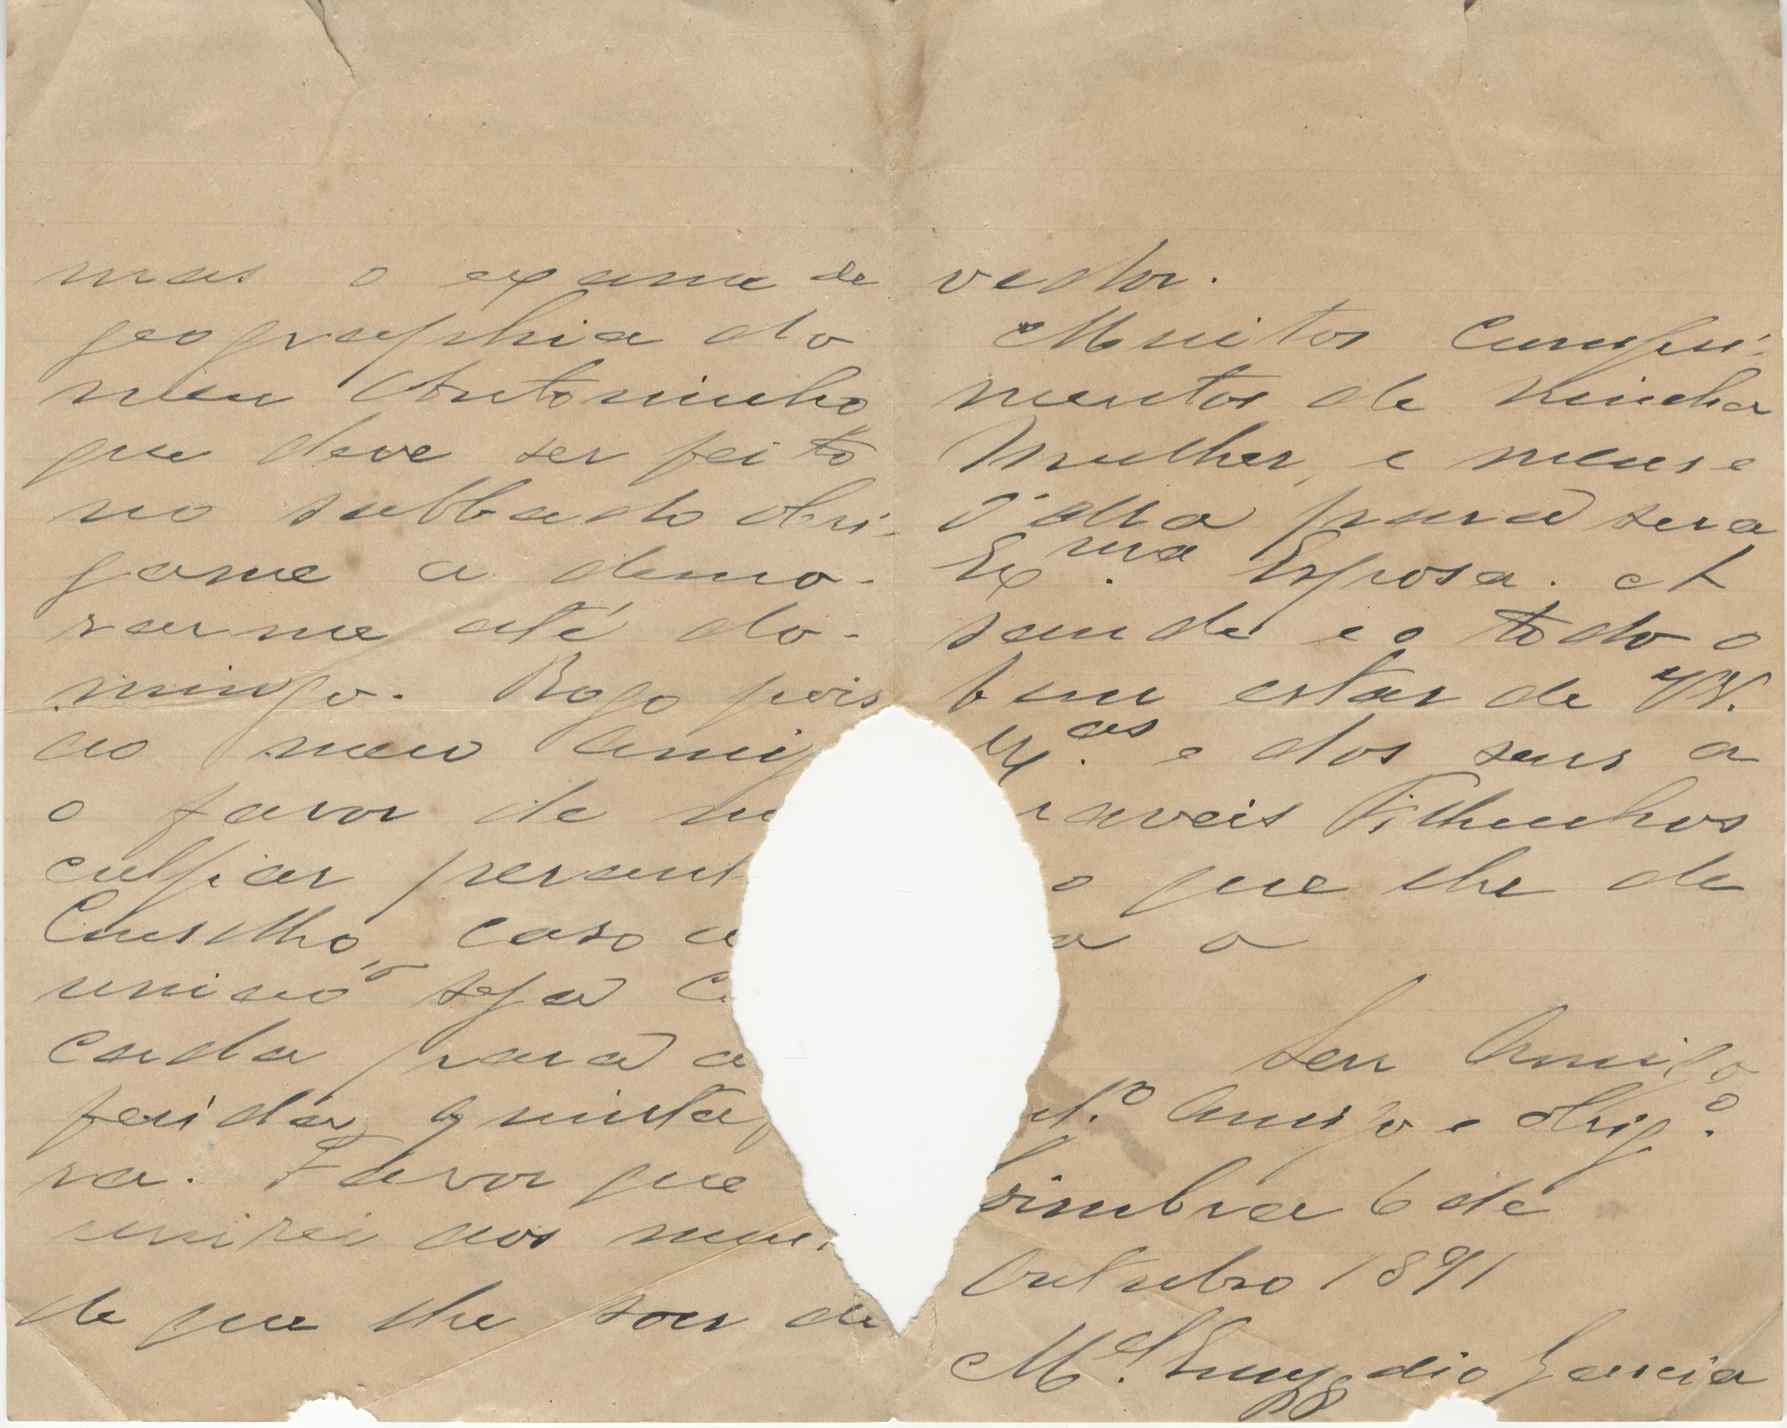 mas o exame de
geographia do
meu Antoninho
que deve ser feito
no sabbado obri-
game a demo-
rarme até do-
mingo. Rogo pois
ao meu amig
o favor de m
culpar perant
Conselho, caso a
união seja c
cada para a
ferida quinta f
ra. Favor que
unirei aos mui
de que lhe sou de
vedor.
Muitos Cumpri-
mentos de minha
Mulher, e meus e
d'ella para sua
Exma. Esposa. A
saude e o todo o
bem estar de VV.
Exas. e dos seus a
raveis Filhinhos
o que lhe de
a o
Seu Amigo
t.o Amigo e Obrig.o
oimbra 6 de
Outubro 1891
Mel. Emygdio Garcia